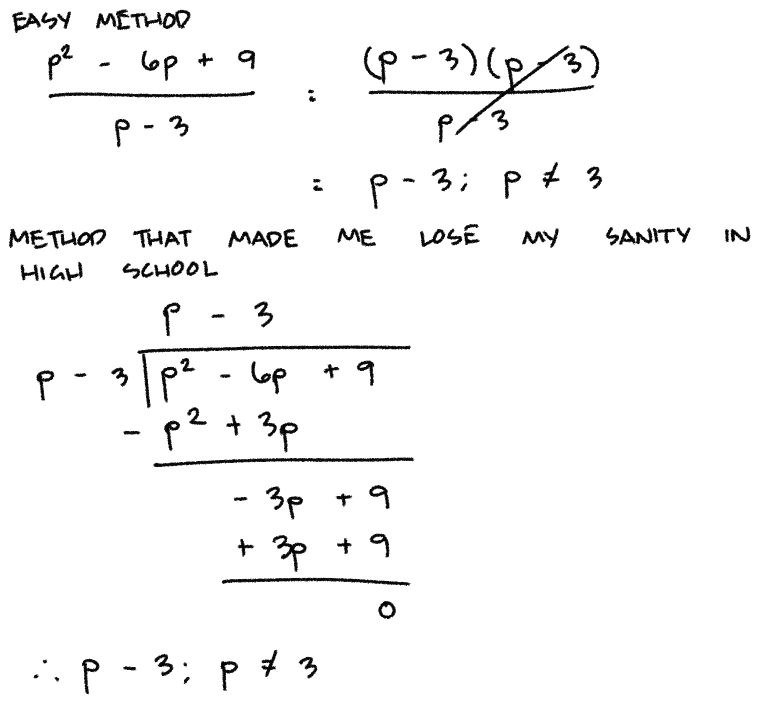 EASY METHOD
p² - 6p + 9 / p - 3 = (p - 3)(p - 3) / p - 3
= p - 3; p ≠ 3
METHOD THAT MADE ME LOSE MY SANITY IN
HIGH SCHOOL
p - 3
p - 3 p² - 6p + 9
- p² + 3p
- 3p + 9
+ 3p + 9
0
∴ p - 3; p ≠ 3